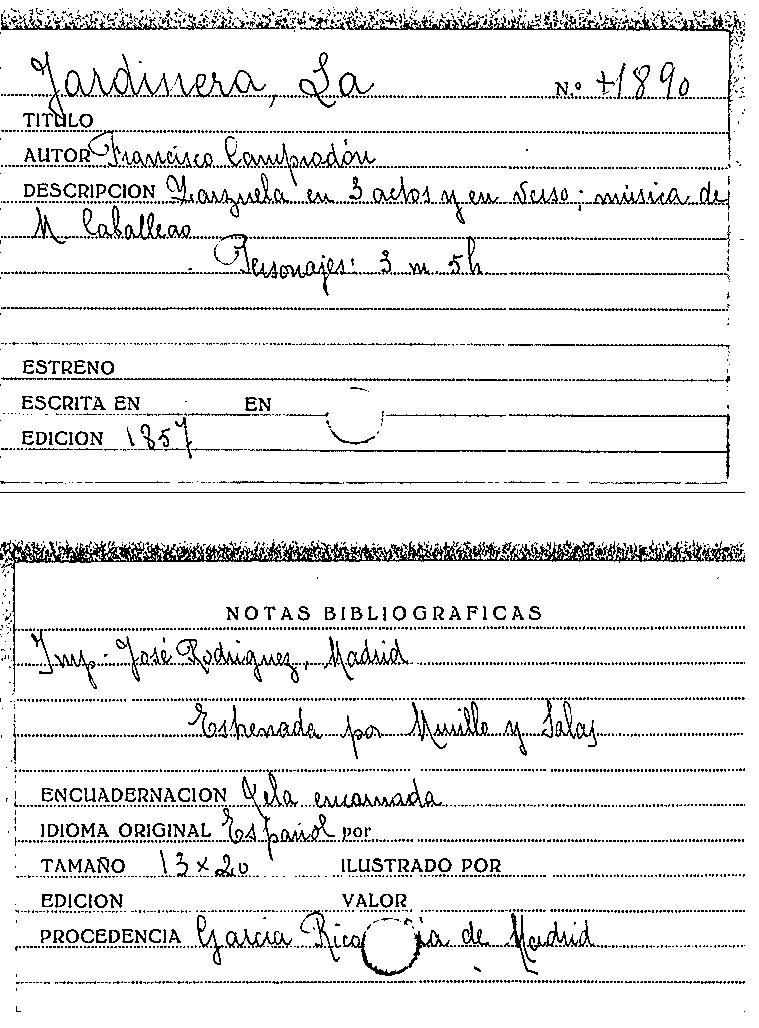 Jardinera, La N.º +1890
TITULO
AUTOR Francisco Camprodón
DESCRIPCION Zarzuela en 3 actos y en verso; música de
M Caballero
Personajes: 3 m 5h
ESTRENO
ESCRITA EN EN
EDICION 1857
NOTAS BIBLIOGRAFICAS
Imp. José Rodriguez, Madrid
Estrenada por Murillo y Salas
ENCUADERNACION Tela encarnada
IDIOMA ORIGINAL Español por
TAMAÑO 13 x 20 ILUSTRADO POR
EDICION VALOR
PROCEDENCIA García Rico de Madrid